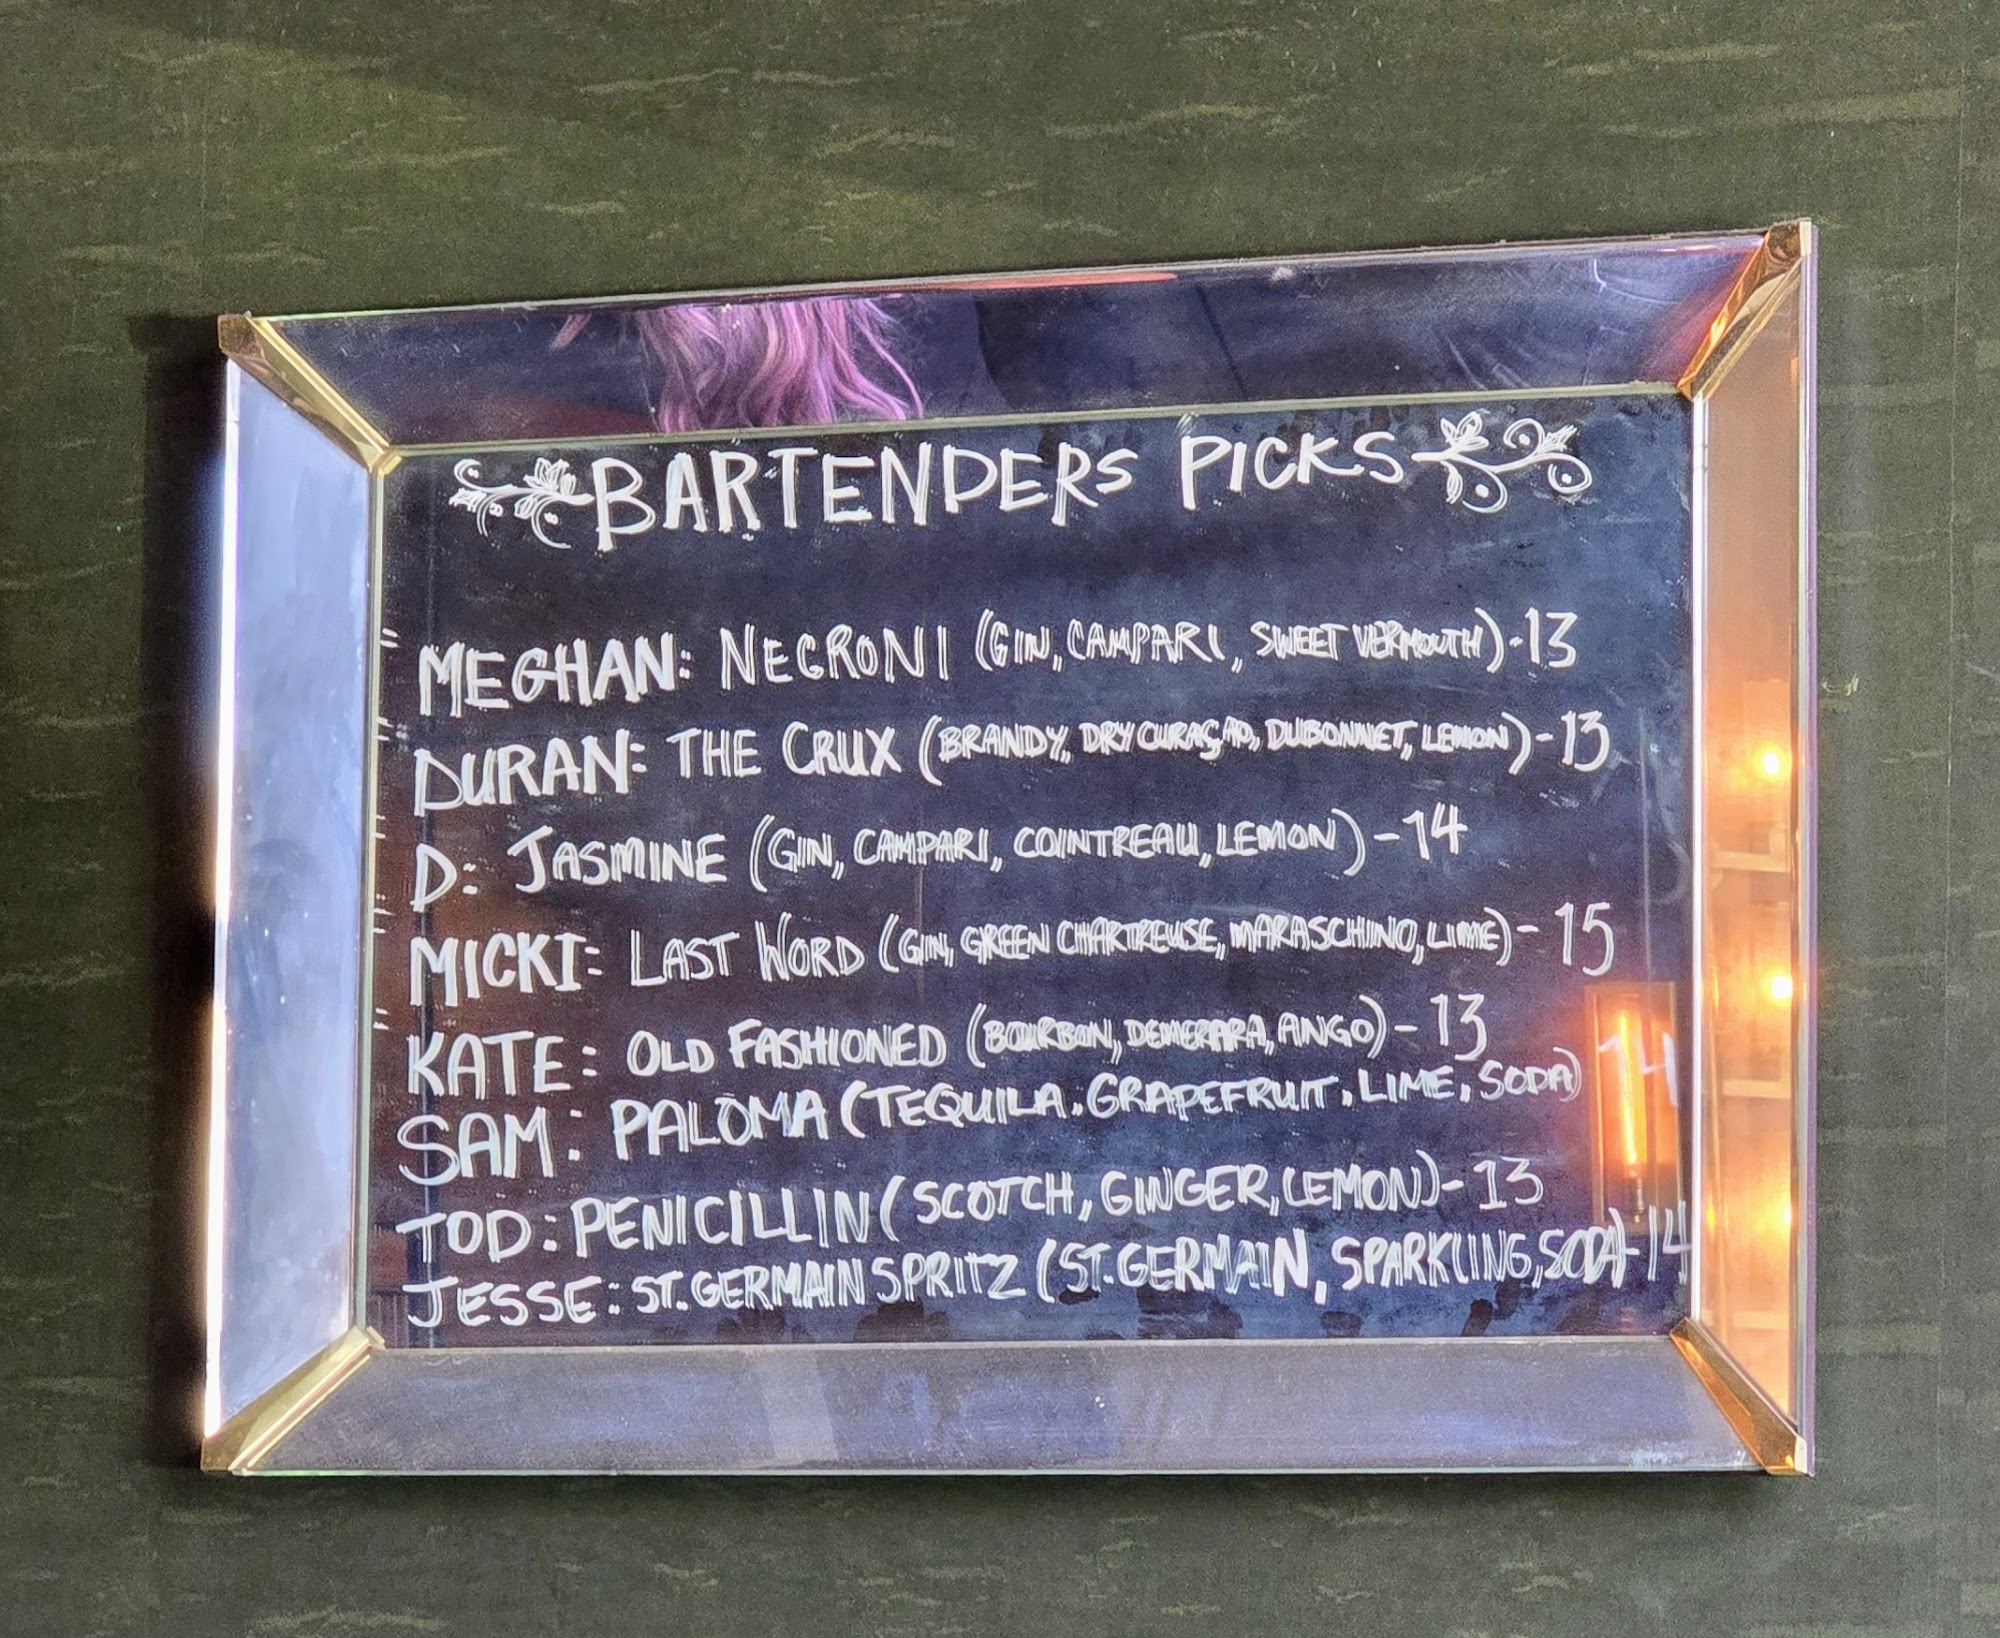 BARTENDERS PICKS
MEGHAN: NEGRONI (GIN, CAMPARI, SWEET VERMOUTH)-13
DURAN: THE CRUX (BRANDY, DRY CURAÇAO, DUBONNET, LEMON)-13
D: JASMINE (GIN, CAMPARI, COINTREAU, LEMON)-14
MICKI: LAST WORD (GIN, GREEN CHARTREUSE, MARASCHINO, LIME)-15
KATE: OLD FASHIONED (BOURBON, DEMERARA, ANGO)-13
SAM: PALOMA (TEQUILA, GRAPEFRUIT, LIME, SODA) 14
TOD: PENICILLIN (SCOTCH, GINGER, LEMON)-13
JESSE: ST. GERMAIN SPRITZ (ST. GERMAIN, SPARKLING, SODA)-14